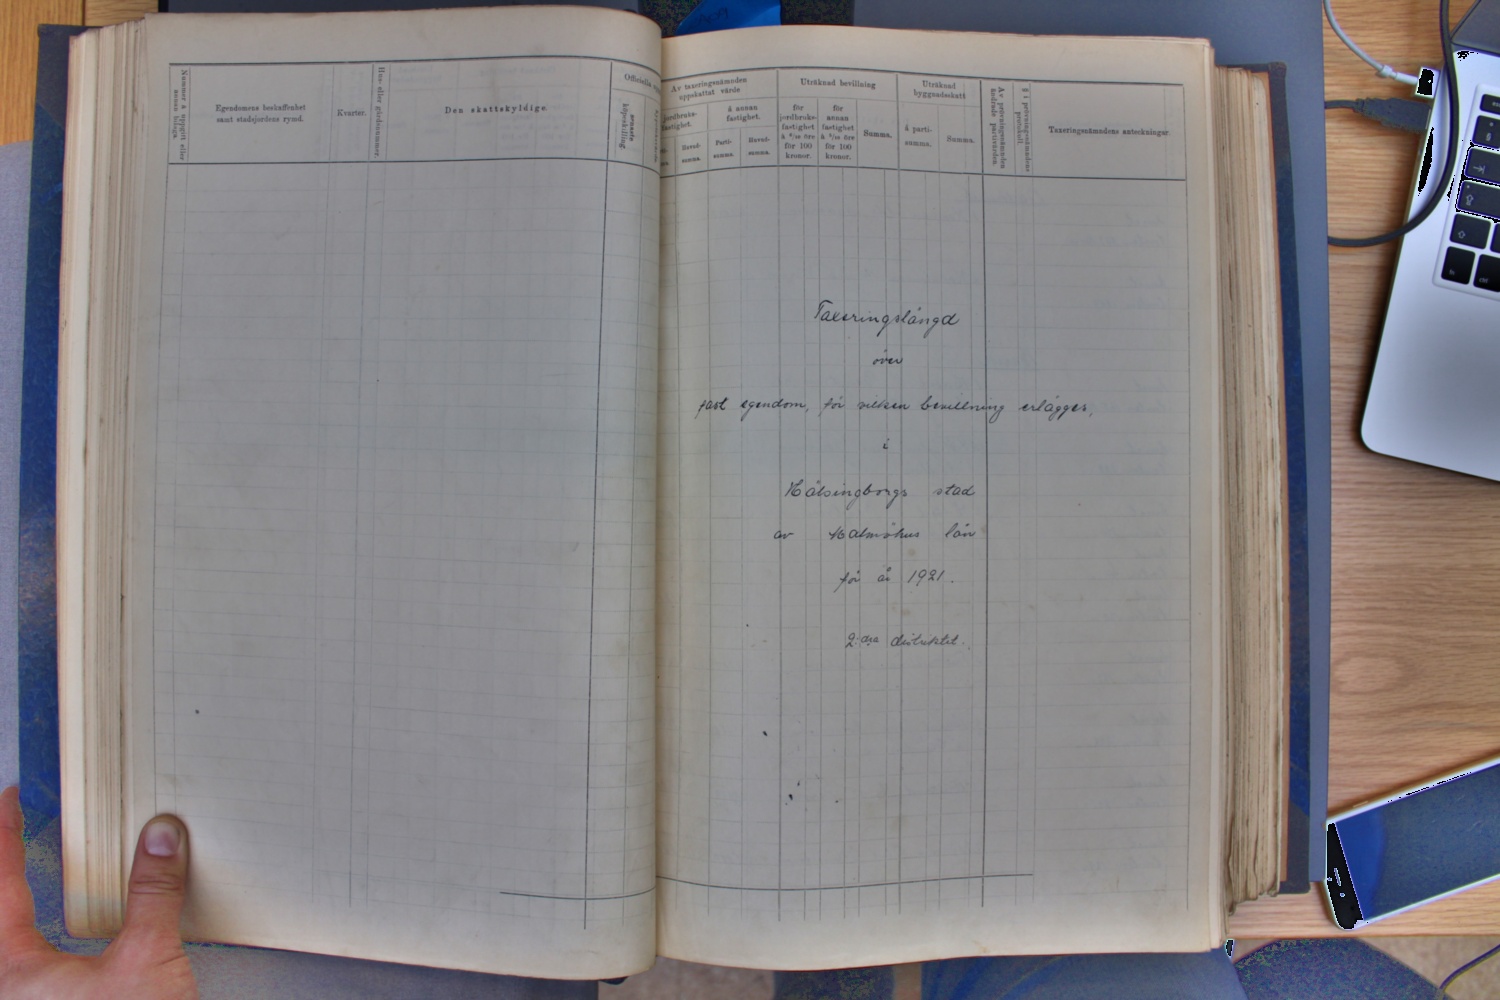 Nummer å uppgift eller
annan bilaga.
Egendomens beskaffenhet
samt stadsjordens rymd.
Kvarter.
Hus- eller gårdsnummer.
Den skattskyldige.
Officiella
senaste
köpeskilling.
Av taxeringsnämnden
uppskattat värde
jordbruks-
fastighet.
Huvud-
summa.
å annan
fastighet.
Parti-
summa.
Huvud-
summa.
Uträknad bevillning
för
jordbruks-
fastighet
å 6/10 öre
för 100
kronor.
för
annan
fastighet
å 5/10 öre
för 100
kronor.
Summa.
Uträknad
byggnadsskatt
å parti-
summa.
Summa.
Av prövningsnämnden
ändrade partivärden.
§ i prövningsnämndens
protokoll.
Taxeringsnämndens anteckningar
Taxeringslängd
över
fast egendom, för vilken bevillning erlägges,
i
Hälsingborgs stad
av Malmöhus län
för år 1921.
2:dra distriktet.